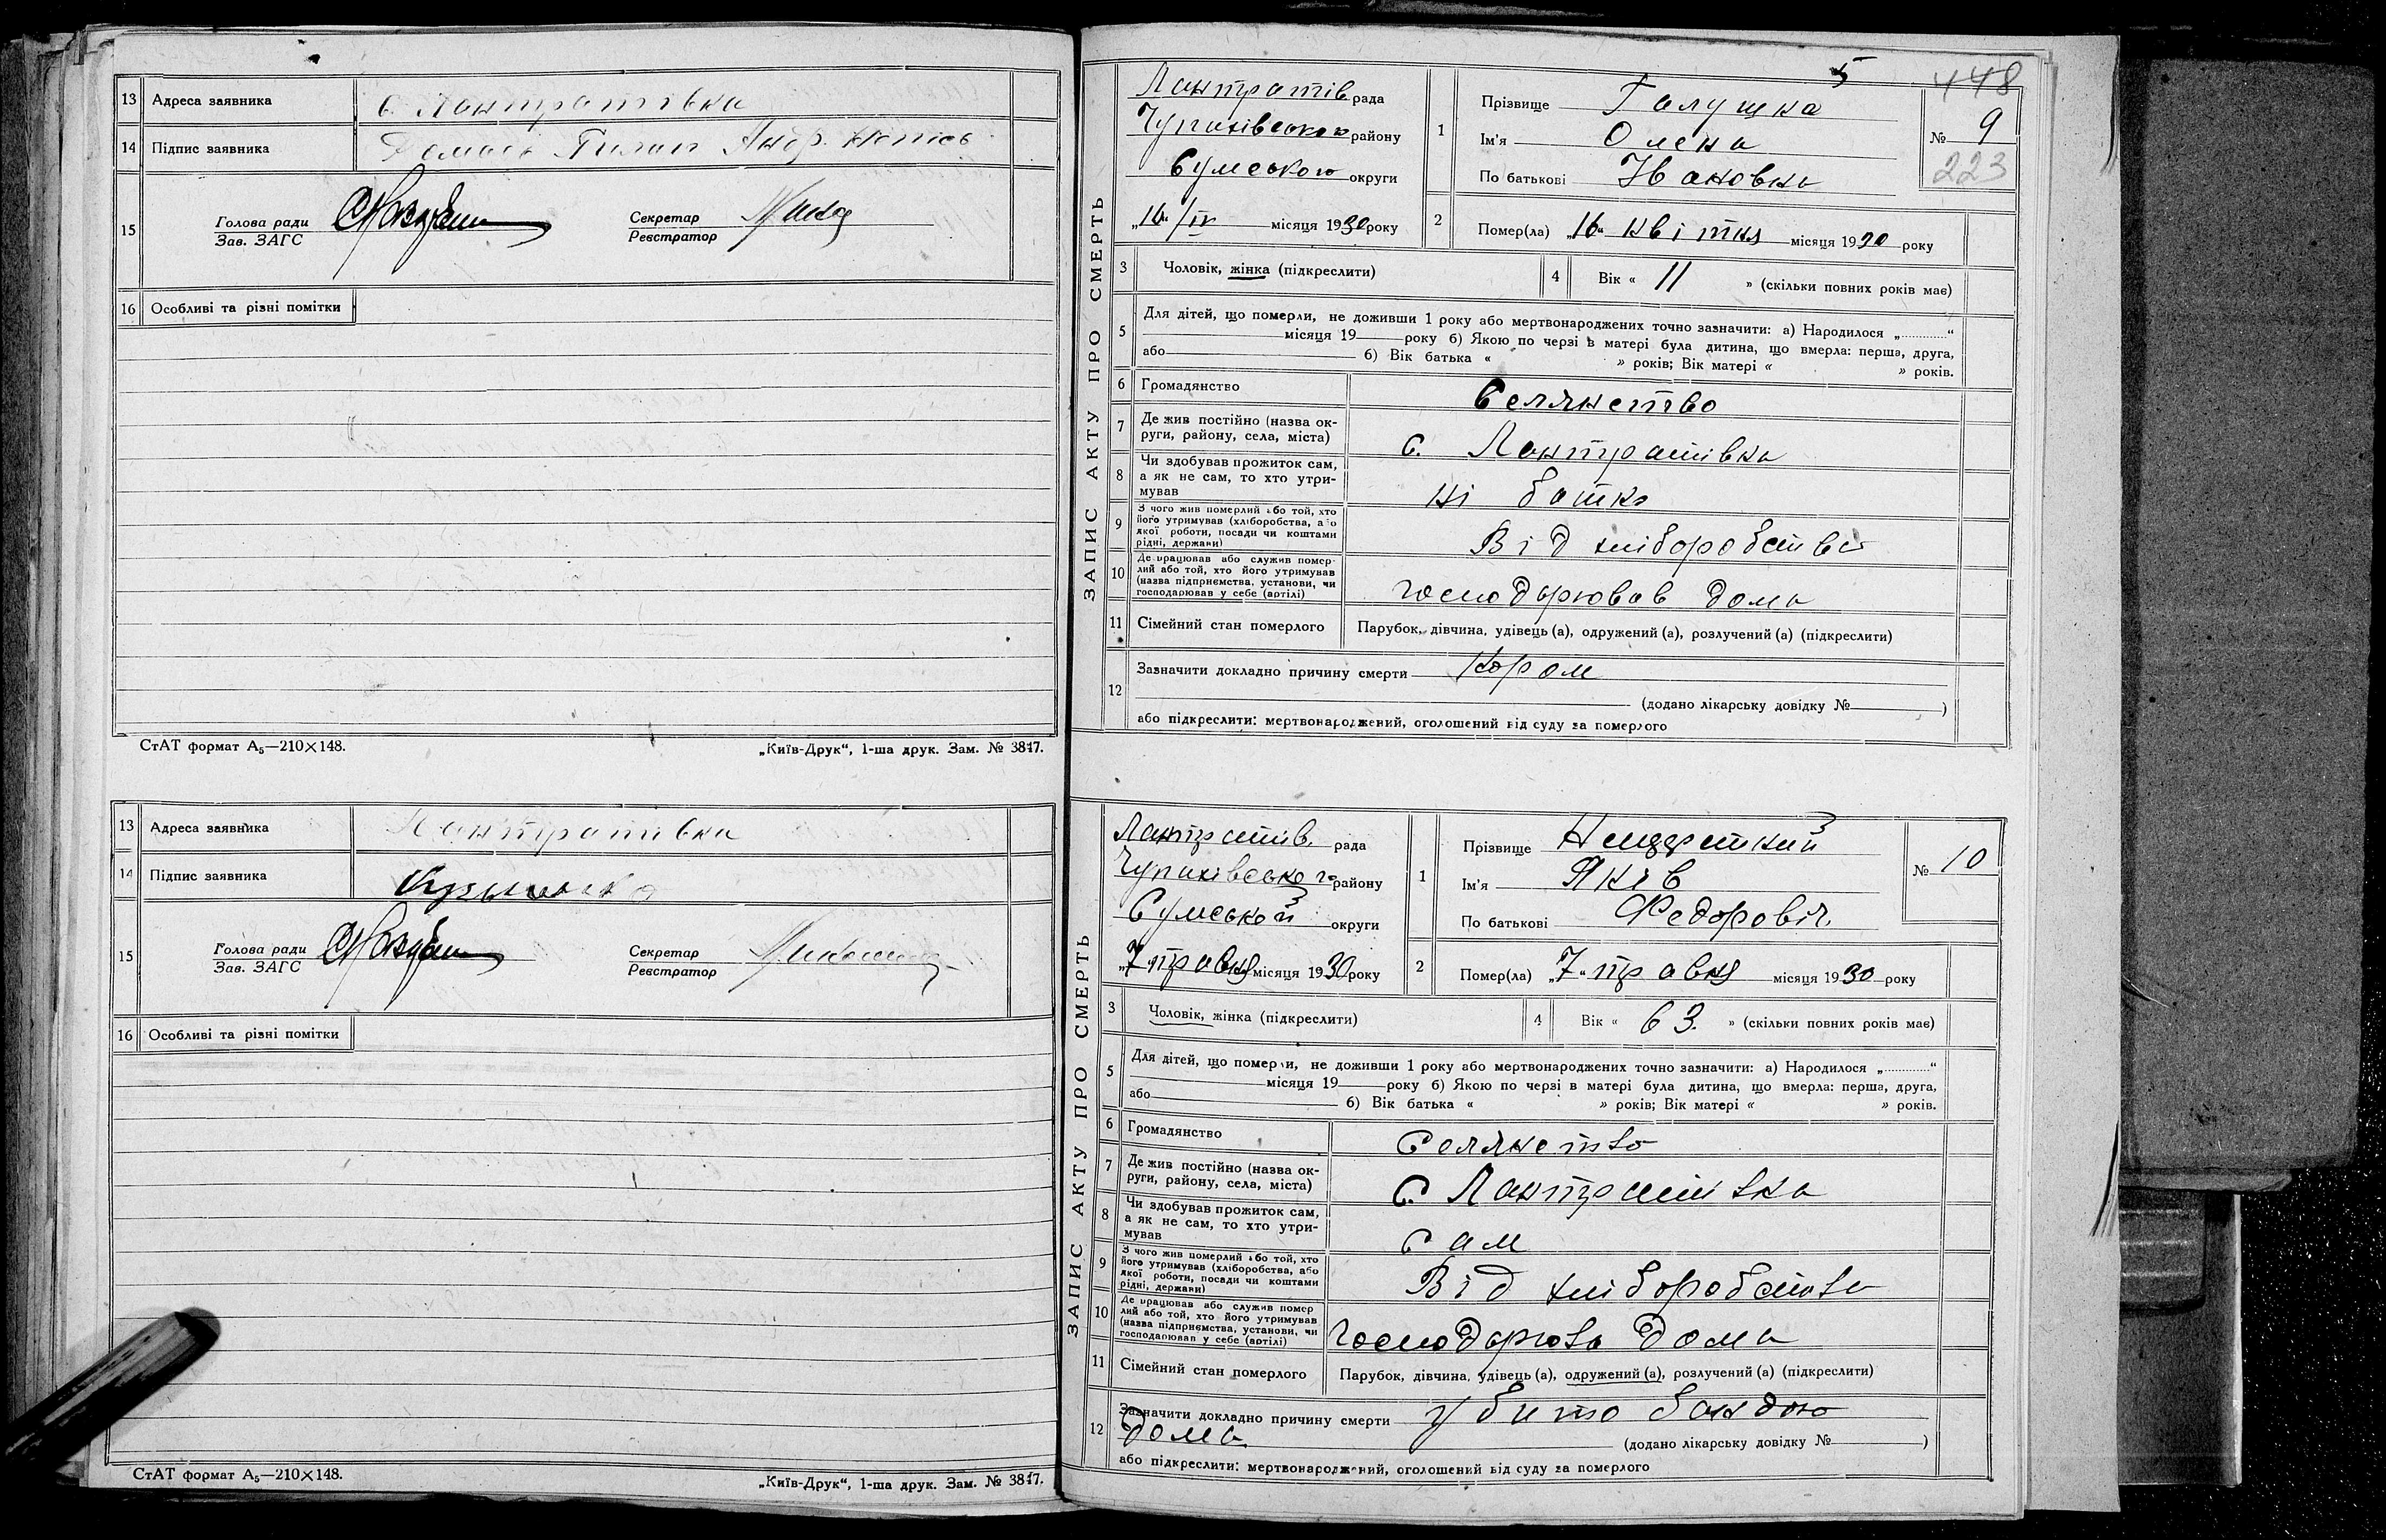 13 Адреса заявника с. Лантратівка
14 Підпис заявника
15 Голова ради
Зав. ЗАГС
Секретар
Реєстратор
16 Особливі та різні помітки
СтАТ формат А₅—210×148.
„Київ-Друк“, 1-ша друк. Зам. № 3847.
13 Адреса заявника Лантратівка
14 Підпис заявника
15 Голова ради
Зав. ЗАГС
Секретар
Реєстратор
16 Особливі та різні помітки
СтАТ формат А₅—210×148.
„Київ-Друк“, 1-ша друк. Зам. № 3847.
5
448
ЗАПИС АКТУ ПРО СМЕРТЬ
Лантратів рада
Чупахівського району
Сумською округи
„16“/IV місяця 1930 року
1 Прізвище Галушка
Ім'я Олена
По батькові Івановна
№ 9
223
2 Помер(ла) „16“ квітня місяця 1930 року
3 Чоловік, жінка (підкреслити)
4 Вік « 11 » (скільки повних років має)
5 Для дітей, що померли, не доживши 1 року або мертвонароджених точно зазначити: а) Народилося „ “
місяця 19 року б) Якою по черзі в матері була дитина, що вмерла: перша, друга,
або б) Вік батька « » років; Вік матері « » років.
6 Громадянство Селянство
7 Де жив постійно (назва ок-
руги, району, села, міста) с. Лантратівка
8 Чи здобував прожиток сам,
а як не сам, то хто утри-
мував ні батко
9 З чого жив померлий або той, хто
його утримував (хліборобства, або
якої роботи, посади чи коштами
рідні, держави) Від хліборобства
10 Де працював або служив помер-
лий або той, хто його утримував
(назва підприємства, установи, чи
господарював у себе (артілі) господарював дома
11 Сімейний стан померлого Парубок, дівчина, удівець (а), одружений (а), розлучений (а) (підкреслити)
12 Зазначити докладно причину смерти Кором
(додано лікарську довідку № )
або підкреслити: мертвонароджений, оголошений від суду за померлого
ЗАПИС АКТУ ПРО СМЕРТЬ
Лантратів. рада
Чупахівського району
Сумської округи
„7“ травня місяця 1930 року
1 Прізвище
Ім'я Яків
По батькові Федоровіч.
№ 10
2 Помер(ла) „7“ травня місяця 1930 року
3 Чоловік, жінка (підкреслити)
4 Вік « 63. » (скільки повних років має)
5 Для дітей, що померли, не доживши 1 року або мертвонароджених точно зазначити: а) Народилося „ “
місяця 19 року б) Якою по черзі в матері була дитина, що вмерла: перша, друга,
або б) Вік батька « » років; Вік матері « » років.
6 Громадянство Селянство
7 Де жив постійно (назва ок-
руги, району, села, міста) с. Лантратівка
8 Чи здобував прожиток сам,
а як не сам, то хто утри-
мував сам
9 З чого жив померлий або той, хто
його утримував (хліборобства, або
якої роботи, посади чи коштами
рідні, держави) Від хліборобства
10 Де працював або служив помер
лий або той, хто його утримував
(назва підприємства, установи, чи
господарював у себе (артілі) господарював дома
11 Сімейний стан померлого Парубок, дівчина, удівець (а), одружений (а), розлучений (а) (підкреслити)
12 Зазначити докладно причину смерти убито бандою
дома
(додано лікарську довідку № )
або підкреслити: мертвонароджений, оголошений від суду за померлого